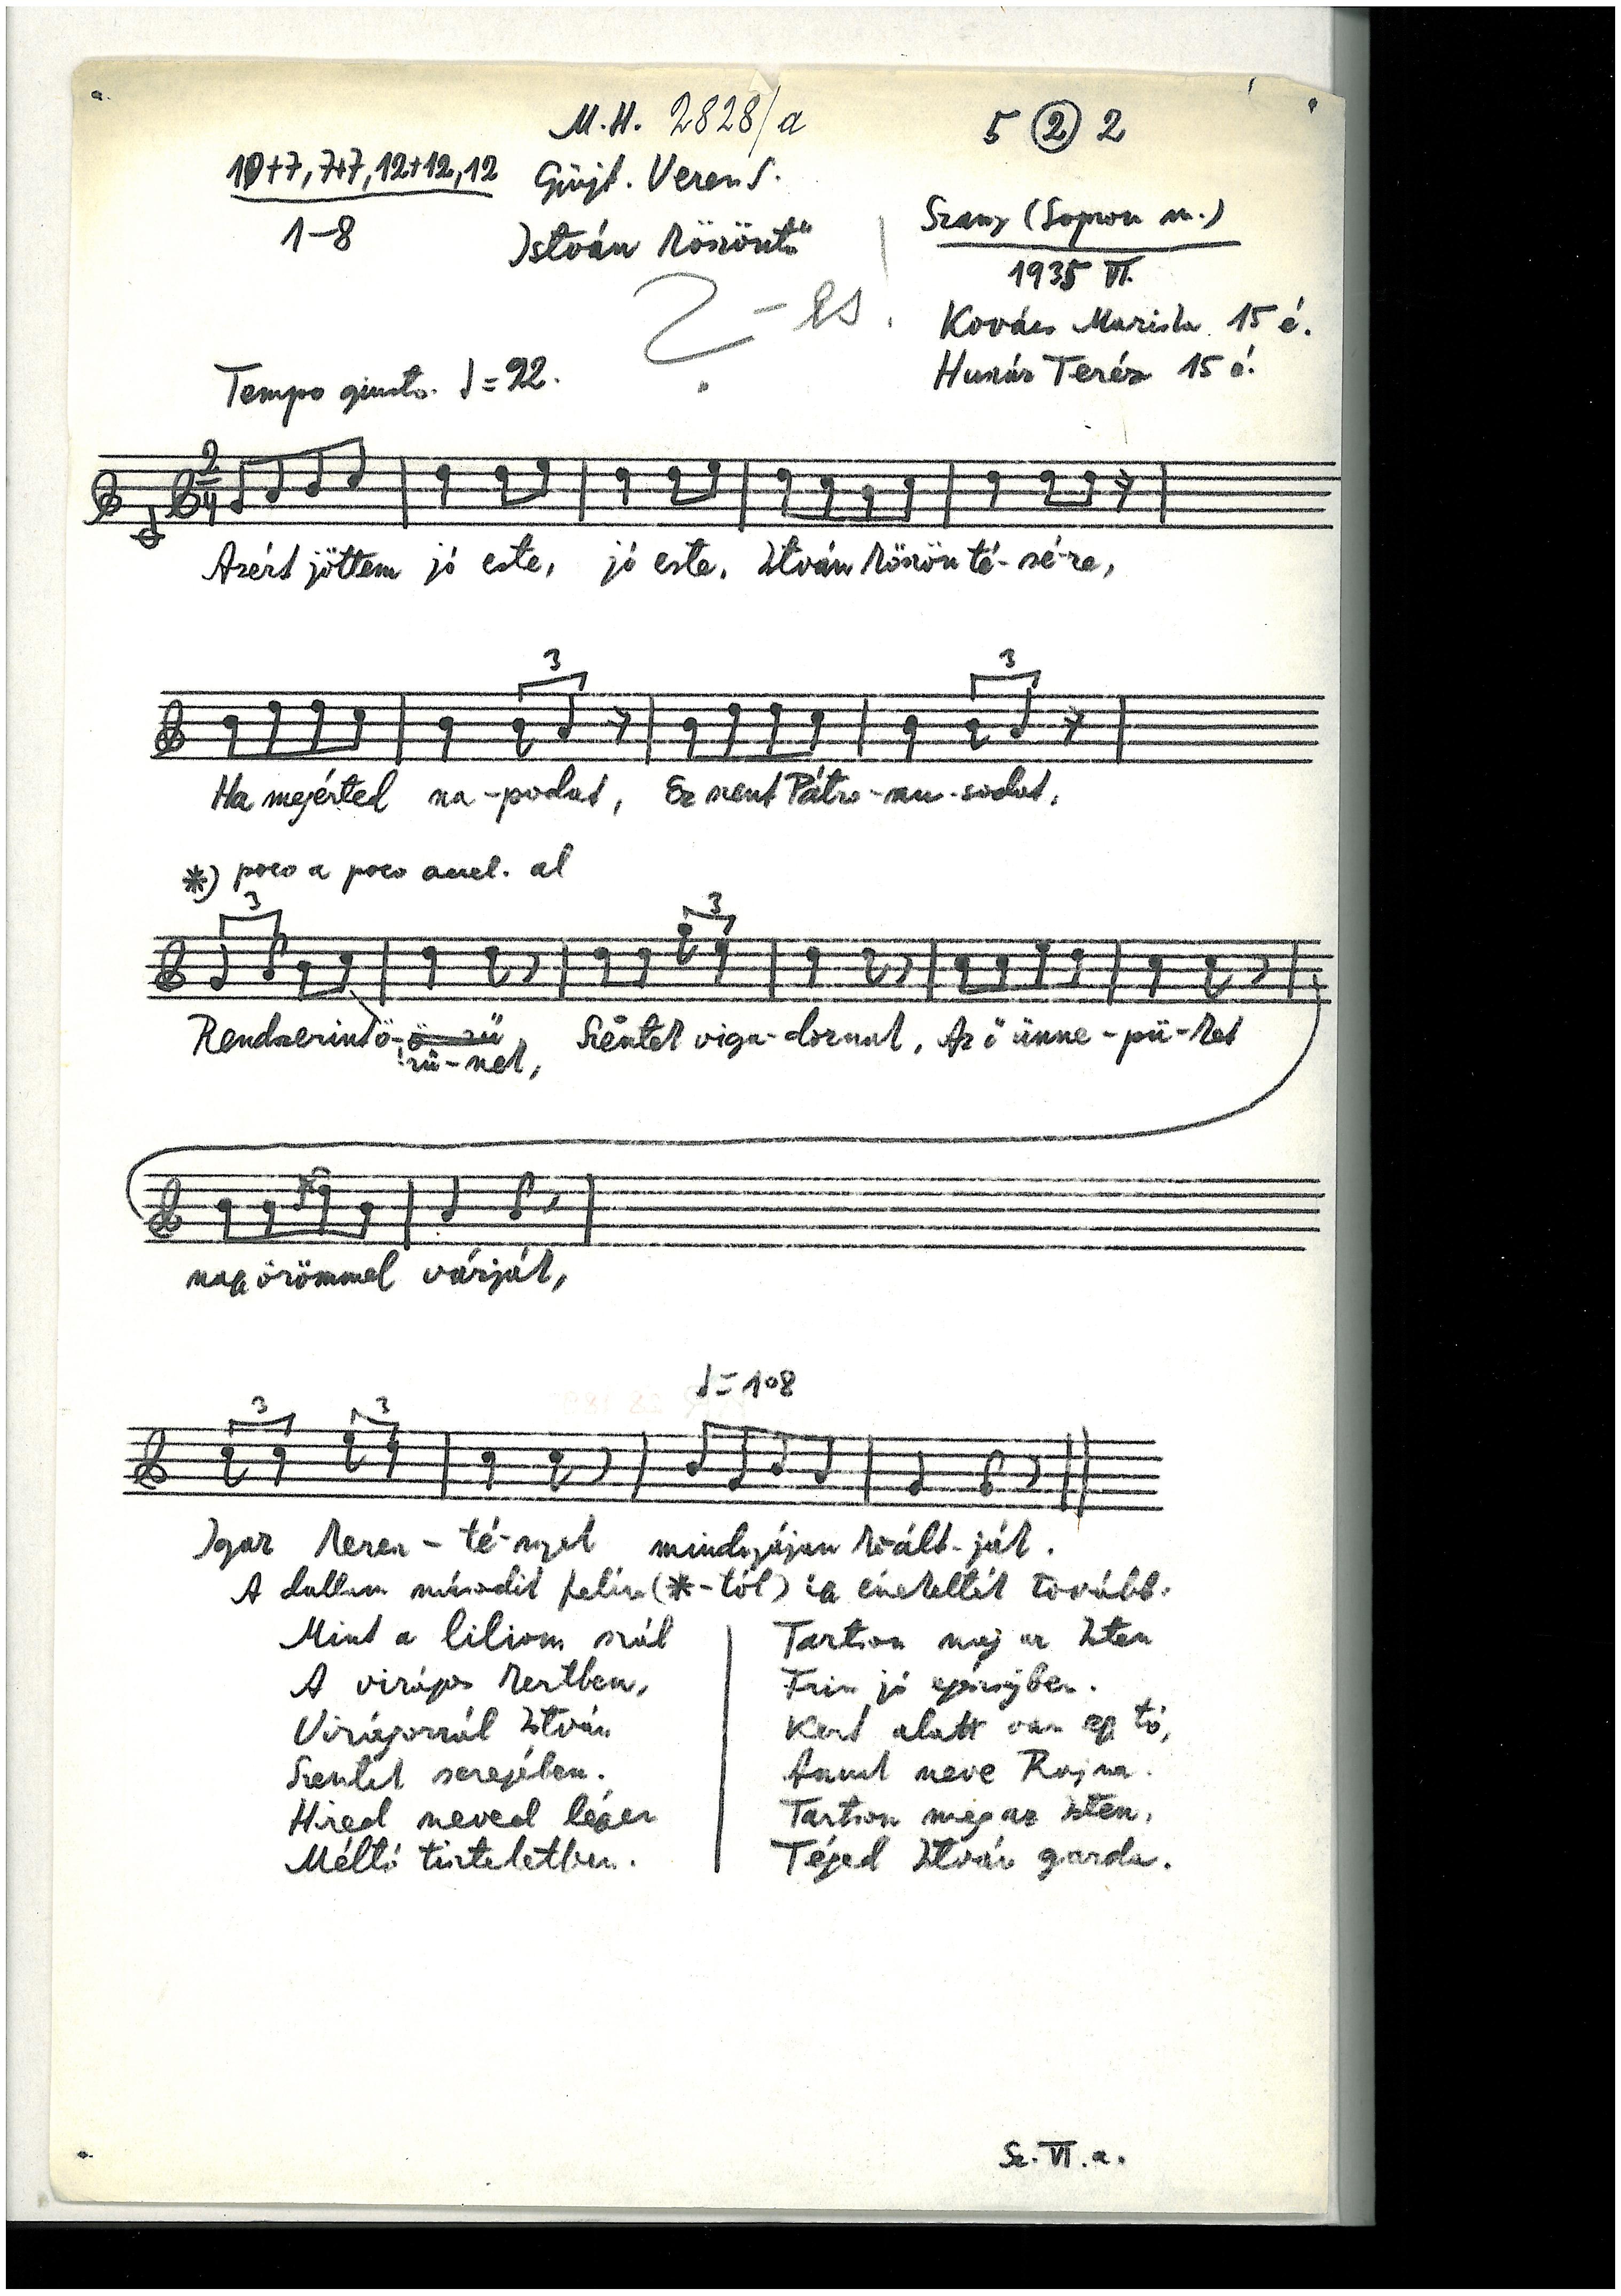 M.H. 2828/a
5 2 2
10+7, 7+7, 12+12, 12
1-8
Gyűjt. Veress S.
István köszöntő
Szany (Sopron m.)
1935 VI.
Kovács Mariska 15 é.
Huszár Teréz 15 é.
?-es.
Tempo giusto. ♩=92.
2/4
Azért jöttem jó este, jó este, István köszönté-sé-re,
3 3
Ha megérted na-podat, Ez szent Pátro-nu-sodat,
*) poco a poco accel. al
3 3
Rendszerint ö-rü-nek, Szentek viga-doznak, Az ő ünne-pü-ket
nagy örömmel várják,
♩=108
3 3
Igaz keresz-té-nyek mindnyájan kiált-ják.
A dallam második felére (*-tól) így énekelték tovább.
Mint a liliom szál
A virágos kertben,
Virágozzál István
Szentek seregében.
Hired neved légyen
Méltó tiszteletben.
Tartson meg az Isten
Friss jó egésségben.
Kert alatt van egy tó,
Annak neve Rajna.
Tartson meg az Isten,
Téged István gazda.
Sz. VI. a.